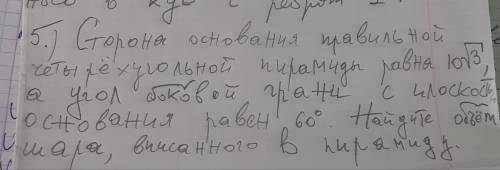 5.) Сторона основания правильной
четырёхугольной пирамиды равна 10√3,
а угол боковой грани с плоскость
основания равен 60°. Найдите объём
шара, вписанного в пирамиду.